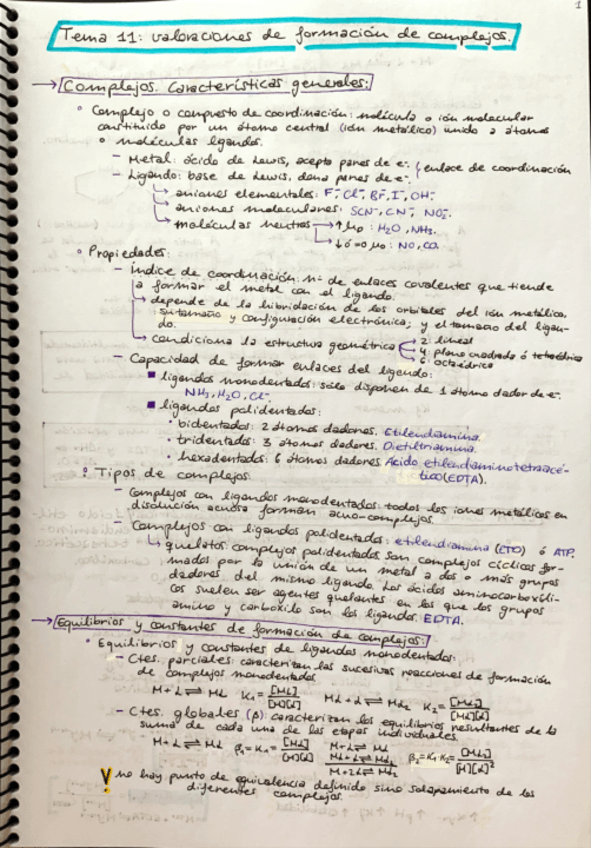 1
Tema 11: valoraciones de formación de complejos.
→ Complejos. Características generales:
° Complejo o compuesto de coordinación: molécula o ión molecular
constituido por un átomo central (ión metálico) unido a átomos
o moléculas ligandos.
- Metal: ácido de Lewis, acepta pares de e⁻.
- Ligando: base de Lewis, dona pares de e⁻.
enlace de coordinación
↳ aniones elementales: F⁻, Cl⁻, Br⁻, I⁻, OH⁻
↳ aniones moleculares: SCN⁻, CN⁻, NO₂⁻.
↳ moléculas neutras → ↑μ₀: H₂O, NH₃.
↳ ↓ó=0 μ₀: NO, CO.
° Propiedades:
- Índice de coordinación: nº de enlaces covalentes que tiende
a formar el metal con el ligando.
↳ depende de la hibridación de los orbitales del ión metálico,
su tamaño y configuración electrónica; y el tamaño del ligan-
do.
↳ condiciona la estructura geométrica
2: lineal
4: plano cuadrada ó tetraédrica
6: octaédrica
- Capacidad de formar enlaces del ligando:
■ ligandos monodentados: solo disponen de 1 átomo dador de e⁻.
NH₃, H₂O, Cl⁻.
■ ligandos polidentados:
• bidentados: 2 átomos dadores. Etilendiamina.
• tridentados: 3 átomos dadores. Dietiltriamina.
• hexadentados: 6 átomos dadores Ácido etilendiaminotetraacé-
tico (EDTA).
° Tipos de complejos.
- Complejos con ligandos monodentados: todos los iones metálicos en
disolución acuosa forman acuo-complejos.
- Complejos con ligandos polidentados: etilendiamina ó ATP.
↳ quelatos: complejos polidentados son complejos cíclicos for-
mados por la unión de un metal a dos o más grupos
dadores del mismo ligando. Los ácidos aminocarboxíli-
cos suelen ser agentes quelantes en los que los grupos
amino y carboxilo son los ligandos. EDTA.
→ Equilibrios y constantes de formación de complejos:
° Equilibrios y constantes de ligandos monodentados:
- Ctes. parciales: caracterizan las sucesivas reacciones de formación
de complejos monodentados
M + L ⇌ ML K₁ = [ML]/[M][L] ML + L ⇌ ML₂ K₂ = [ML₂]/[ML][L]
- Ctes. globales (β): caracterizan los equilibrios resultantes de la
suma de cada una de las etapas individuales.
M + L ⇌ ML β₁ = K₁ = [ML]/[M][L]
M + L ⇌ ML
ML + L ⇌ ML₂
M + 2L ⇌ ML₂
β₂ = K₁·K₂ = [ML₂]/[M][L]²
! no hay punto de equivalencia definido sino solapamiento de los
diferentes complejos.